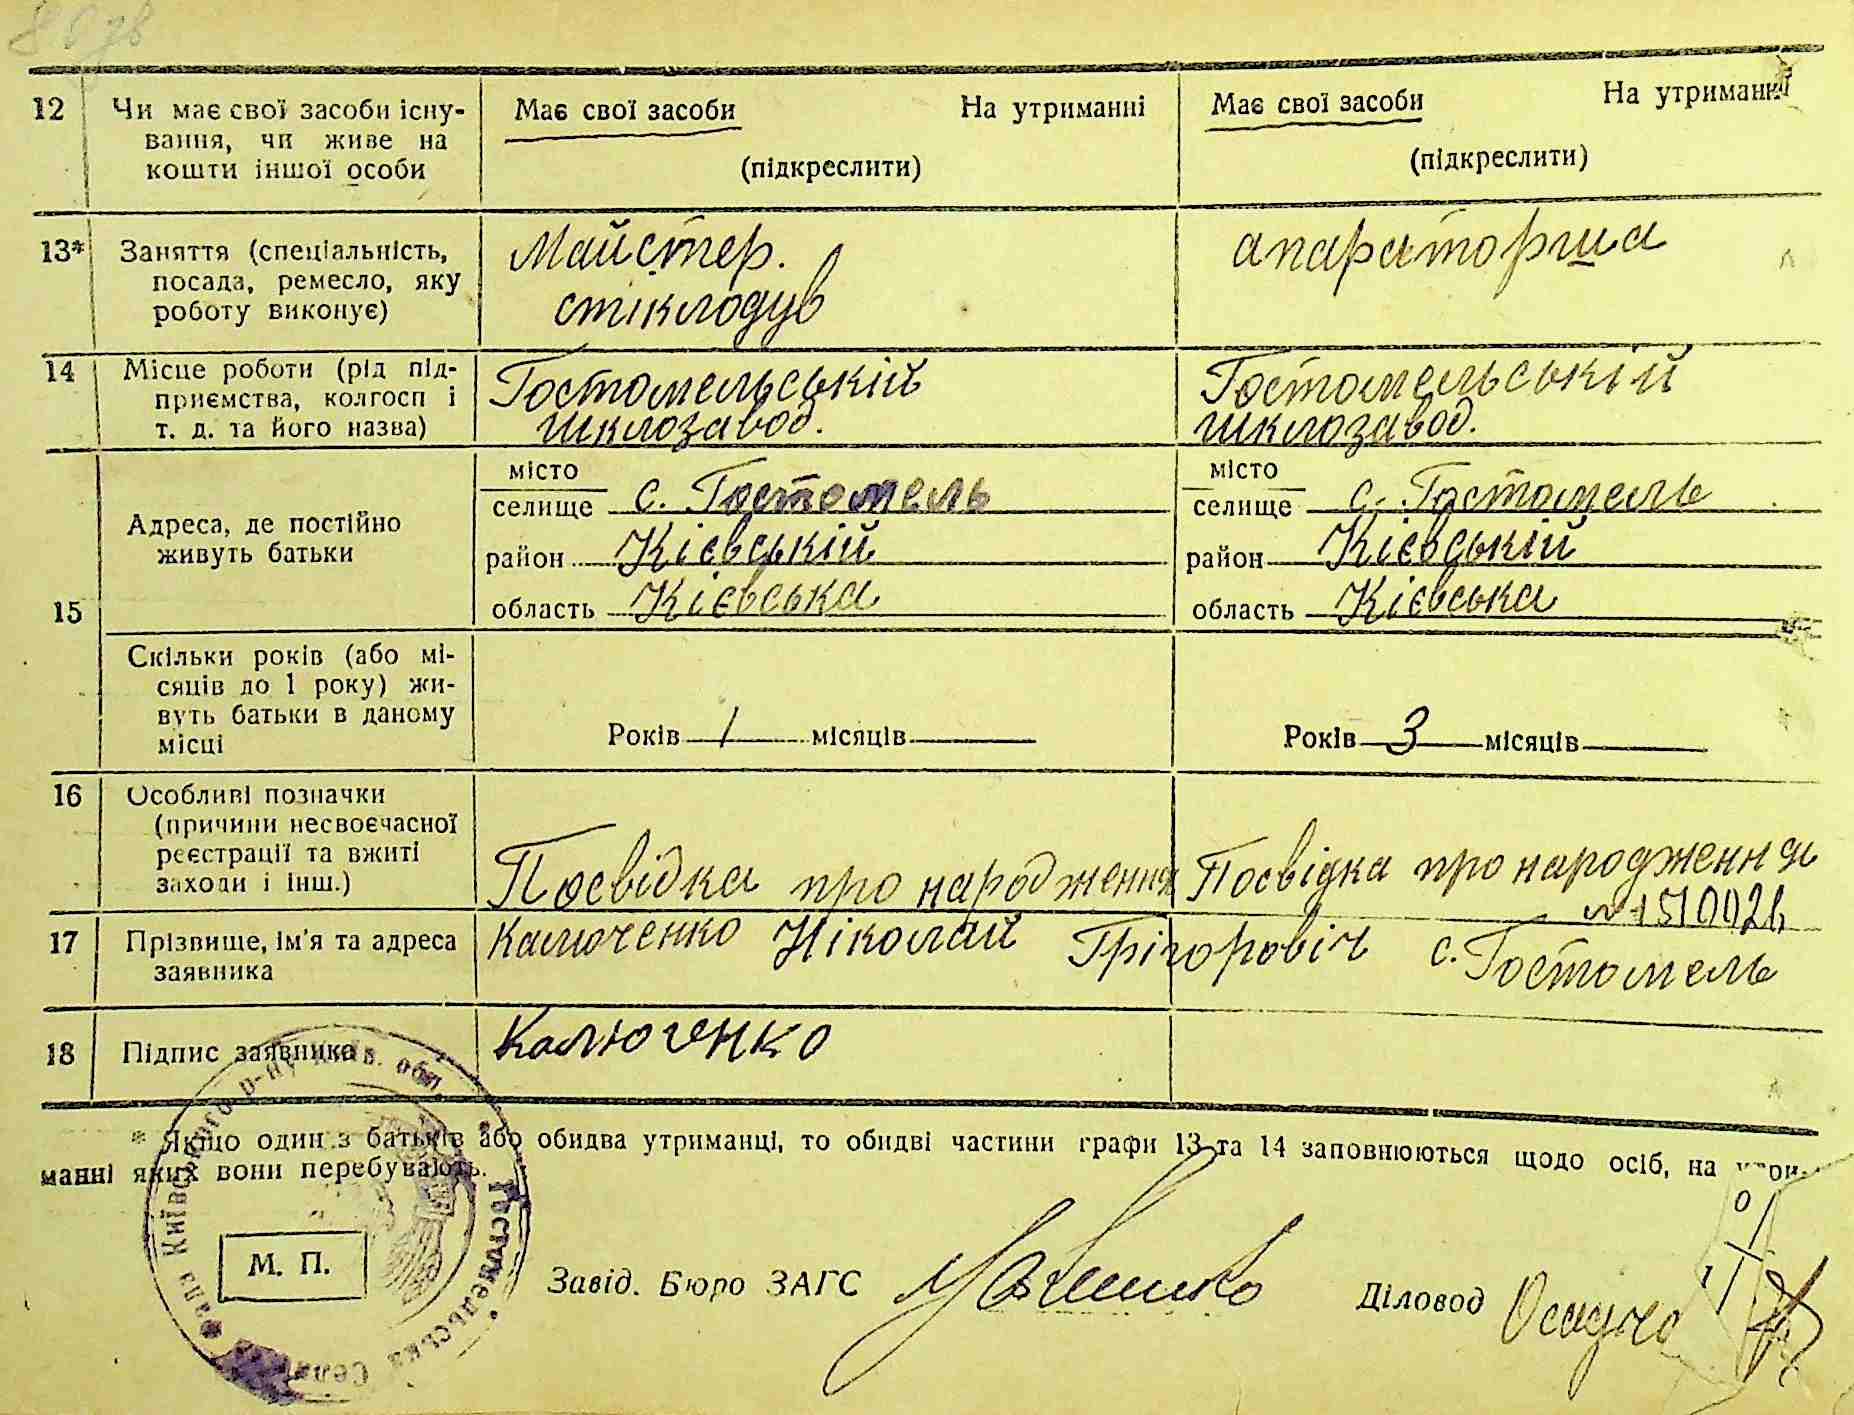 12 Чи має свої засоби існу-
вання, чи живе на
кошти іншої особи
Має свої засоби На утриманні
(підкреслити)
Має свої засоби На утриманні
(підкреслити)
13* Заняття (спеціальність,
посада, ремесло, яку
роботу виконує)
Майстер.
стіклодув
апараторша
14 Місце роботи (рід під-
приємства, колгосп і
т. д. та його назва)
Гостомельській
шклозавод.
Гостомельській
шклозавод.
15 Адреса, де постійно
живуть батьки
місто
селище с. Гостомель
район Кієвській
область Кієвська
місто
селище с. Гостомель
район Кієвській
область Кієвська
Скільки років (або мі-
сяців до 1 року) жи-
вуть батьки в даному
місці
Років 1 місяців
Років 3 місяців
16 Особливі позначки
(причини несвоєчасної
реєстрації та вжиті
заходи і інш.)
Посвідка про народження
Посвідка про народження
17 Прізвище, ім'я та адреса
заявника
Калюченко Ніколай Грігоровіч с. Гостомель
18 Підпис заявника
Калюченко
* Якщо один з батьків або обидва утриманці, то обидві частини графи 13 та 14 заповнюються щодо осіб, на утри-
манні яких вони перебувають.
М. П.
Завід. Бюро ЗАГС
Діловод
Гостомельська
Київського р-ну Київ. обл.